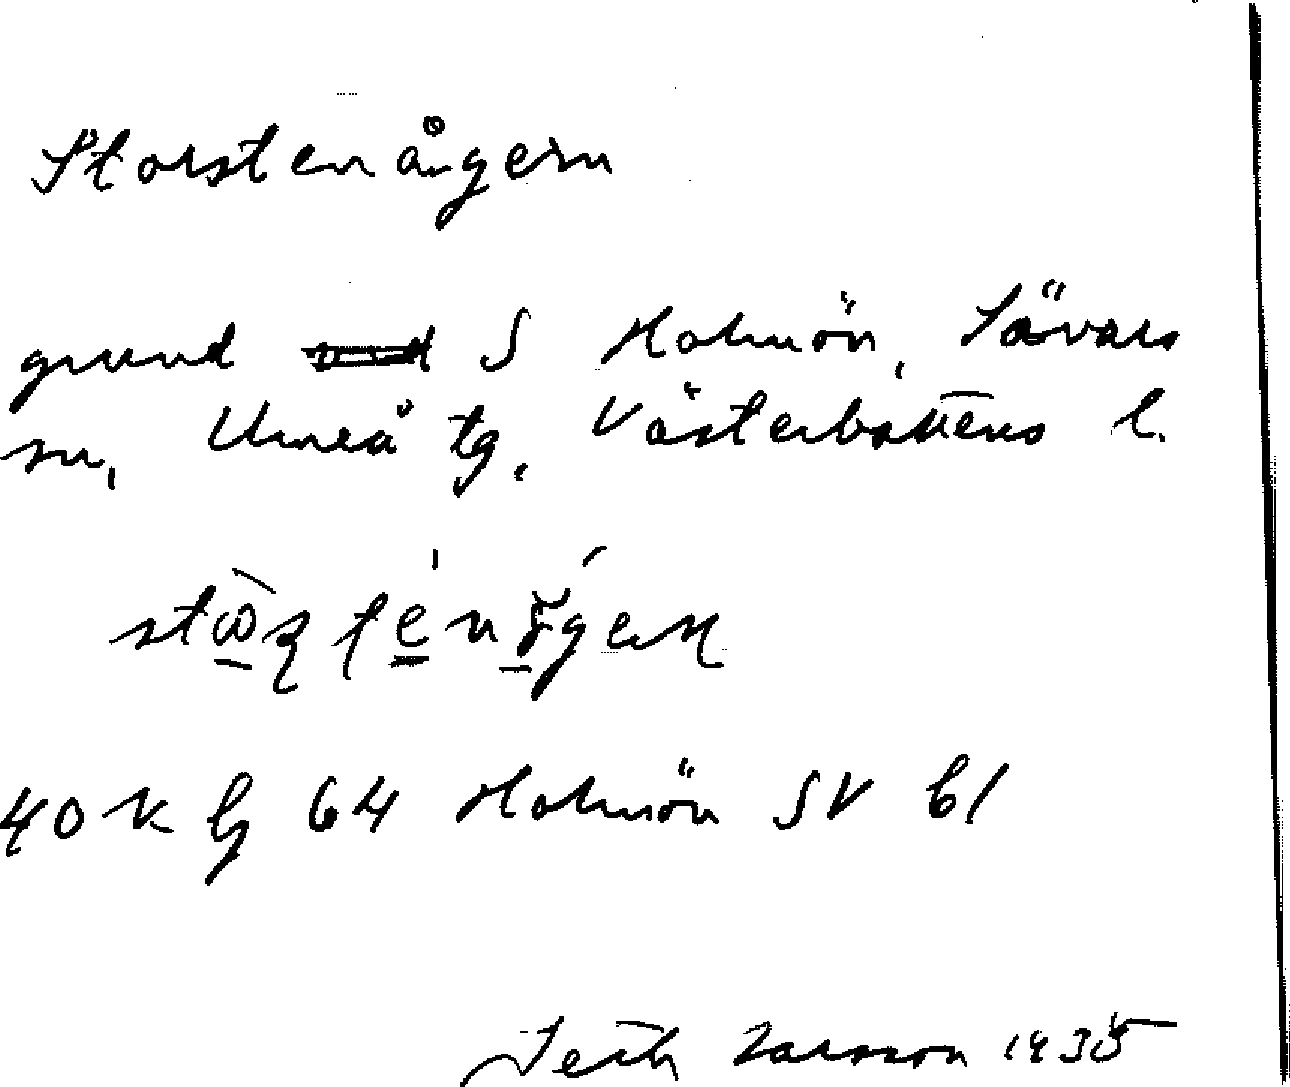 Storstenångern
grund S Holmön, Sävars
sn, Umeå tg, Västerbottens l.
40 K g 64 Holmön SV bl
Seth Larsson 1935